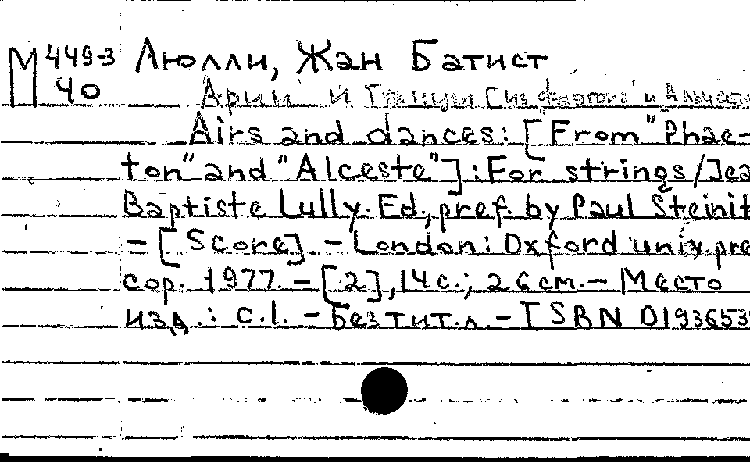 М 449-3 Люлли, Жан Батист
40
Арии и Танцы
Airs and dances: [From "Phae-
ton" and "Alceste"]: For strings/Jea
Baptiste Lully. Ed., pref. by Paul Steinit
= [Score]. - London: Oxford univ. pre
cop. 1977. - [2], 14 с.; 26 см. - Место
изд.: с.l. - Без тит. л. - ISBN 0193653